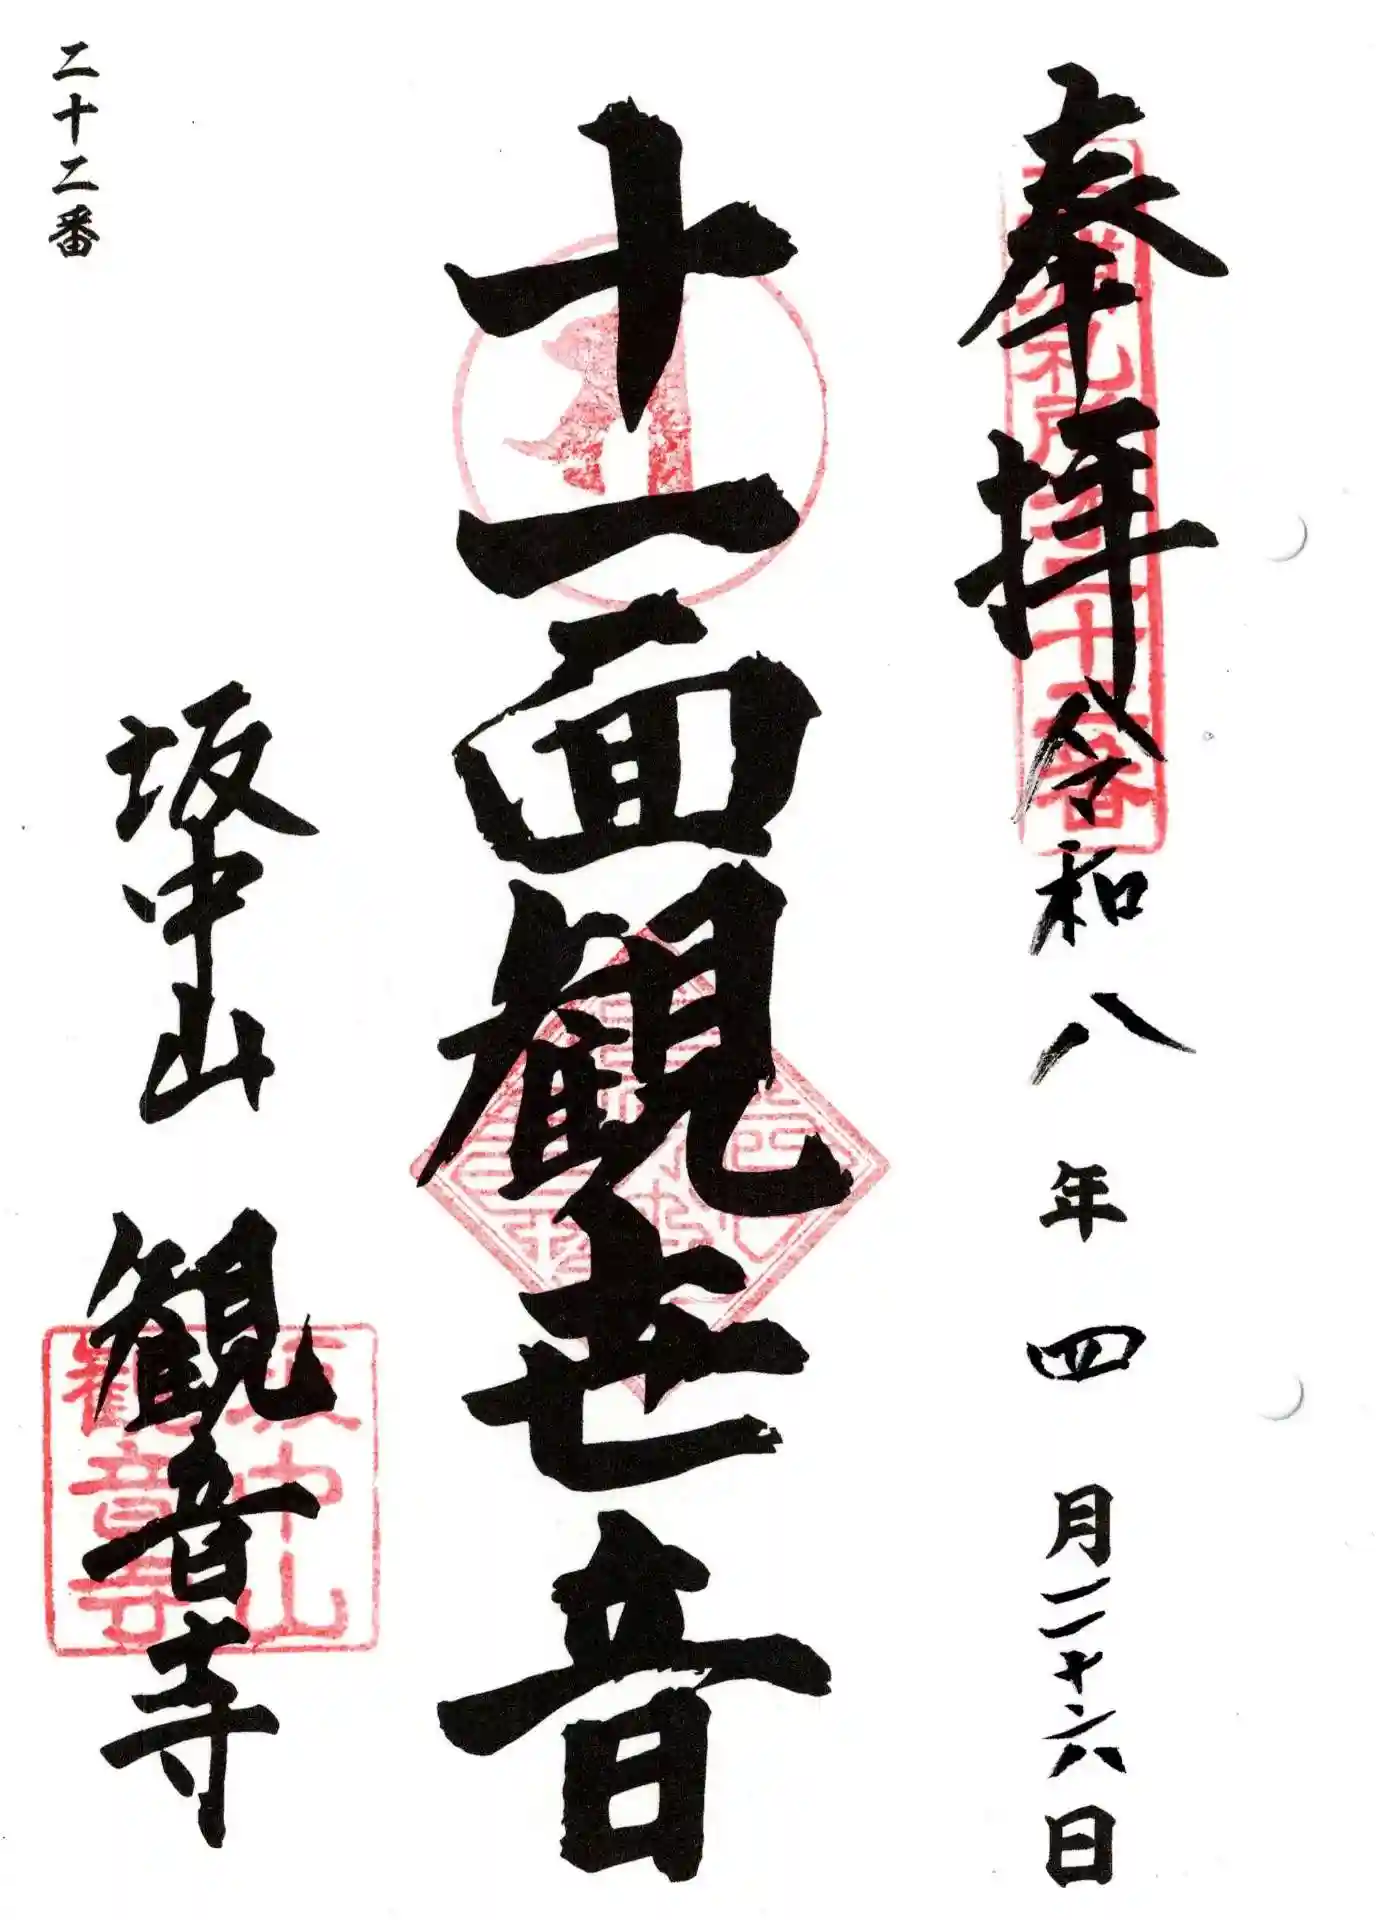 奉拝
令和八年四月二十六日
十一面観世音
坂中山 観音寺
二十二番
坂中山
観音寺